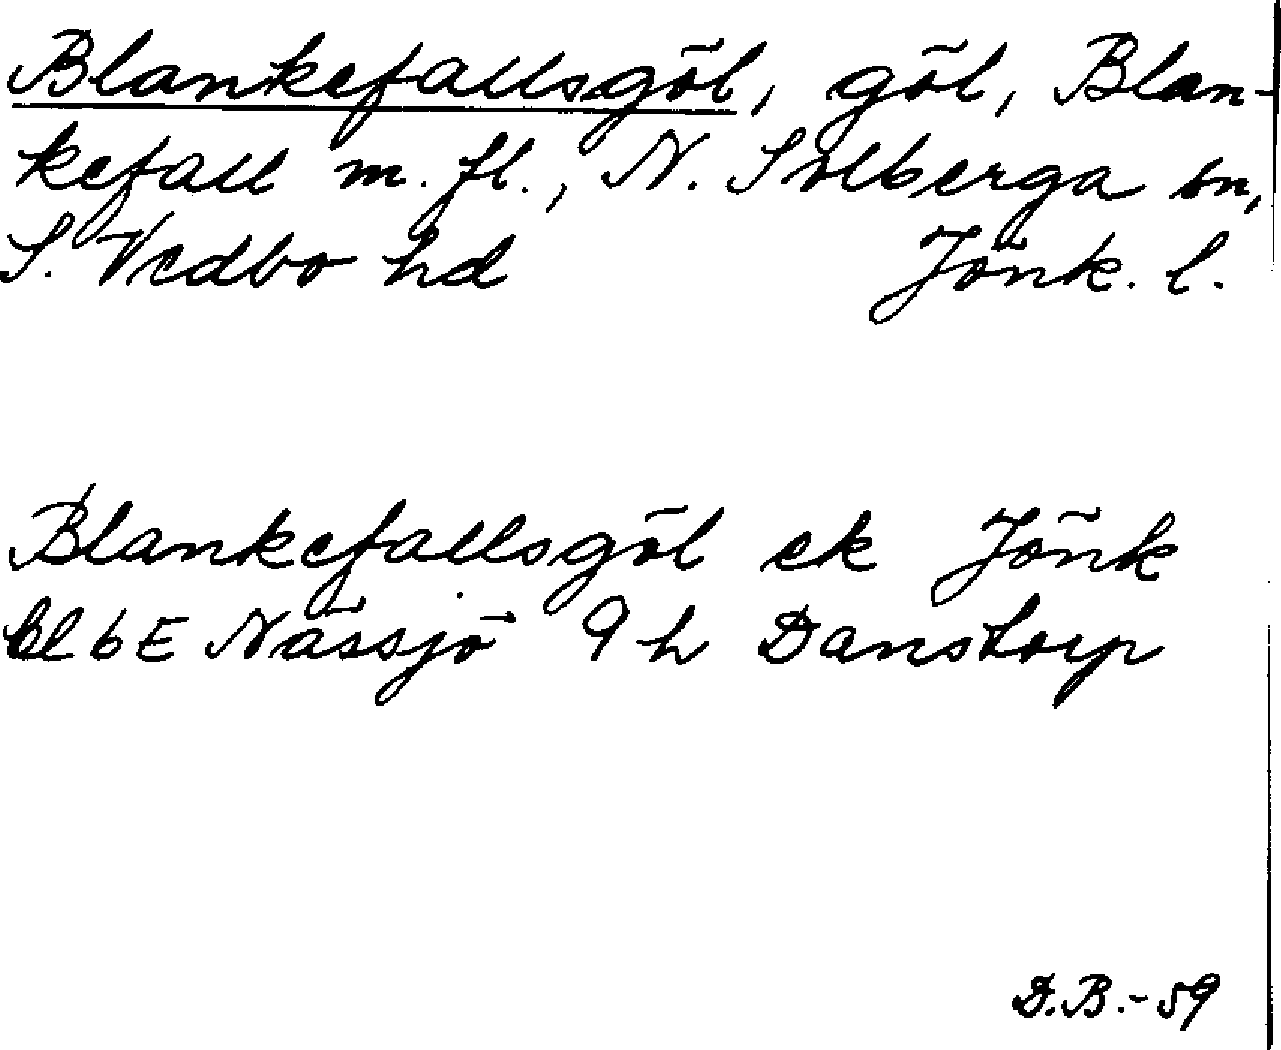 Blankefallsgöl, göl, Blan-
kefall m. fl., N. Solberga sn,
S. Vedbo hd Jönk. l.
Blankefallsgöl ek Jönk
bl 6 E Nässjö 9 h Danstorp
D.B.-59